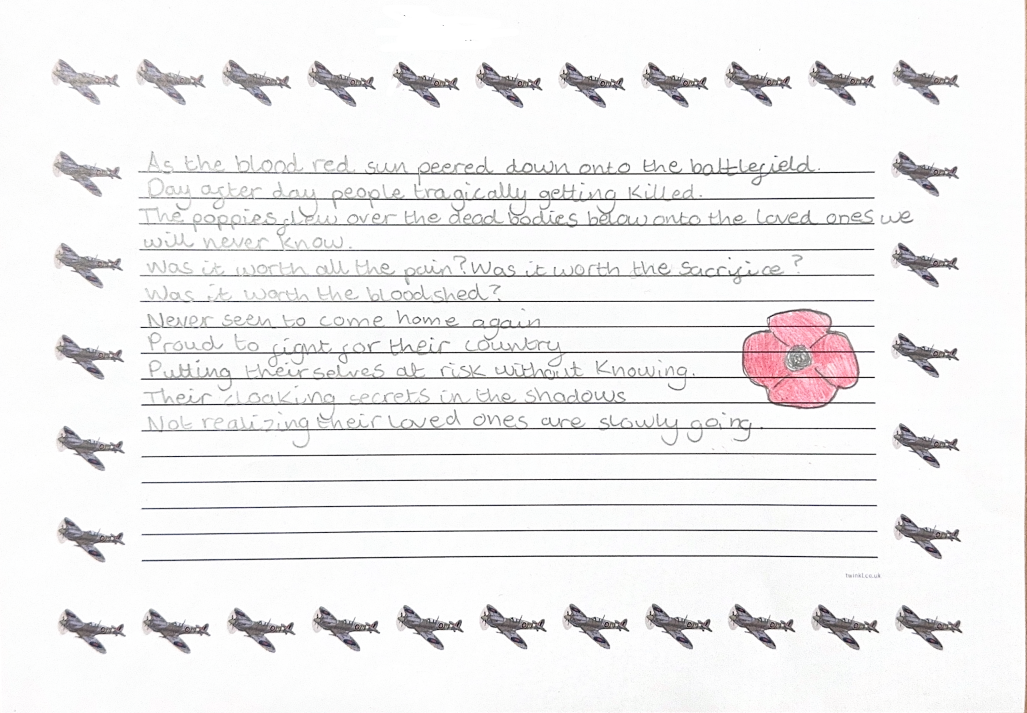 As the blood red sun peered down onto the battlefield.
Day after day people tragically getting killed.
The poppies flew over the dead bodies below onto the loved ones we
will never know.
Was it worth all the pain? Was it worth the sacrifice?
Was it worth the bloodshed?
Never seen to come home again
Proud to fight for their country
Putting theirselves at risk without knowing.
Their secrets in the shadows
Not realizing their loved ones are slowly going.
twinkl.co.uk